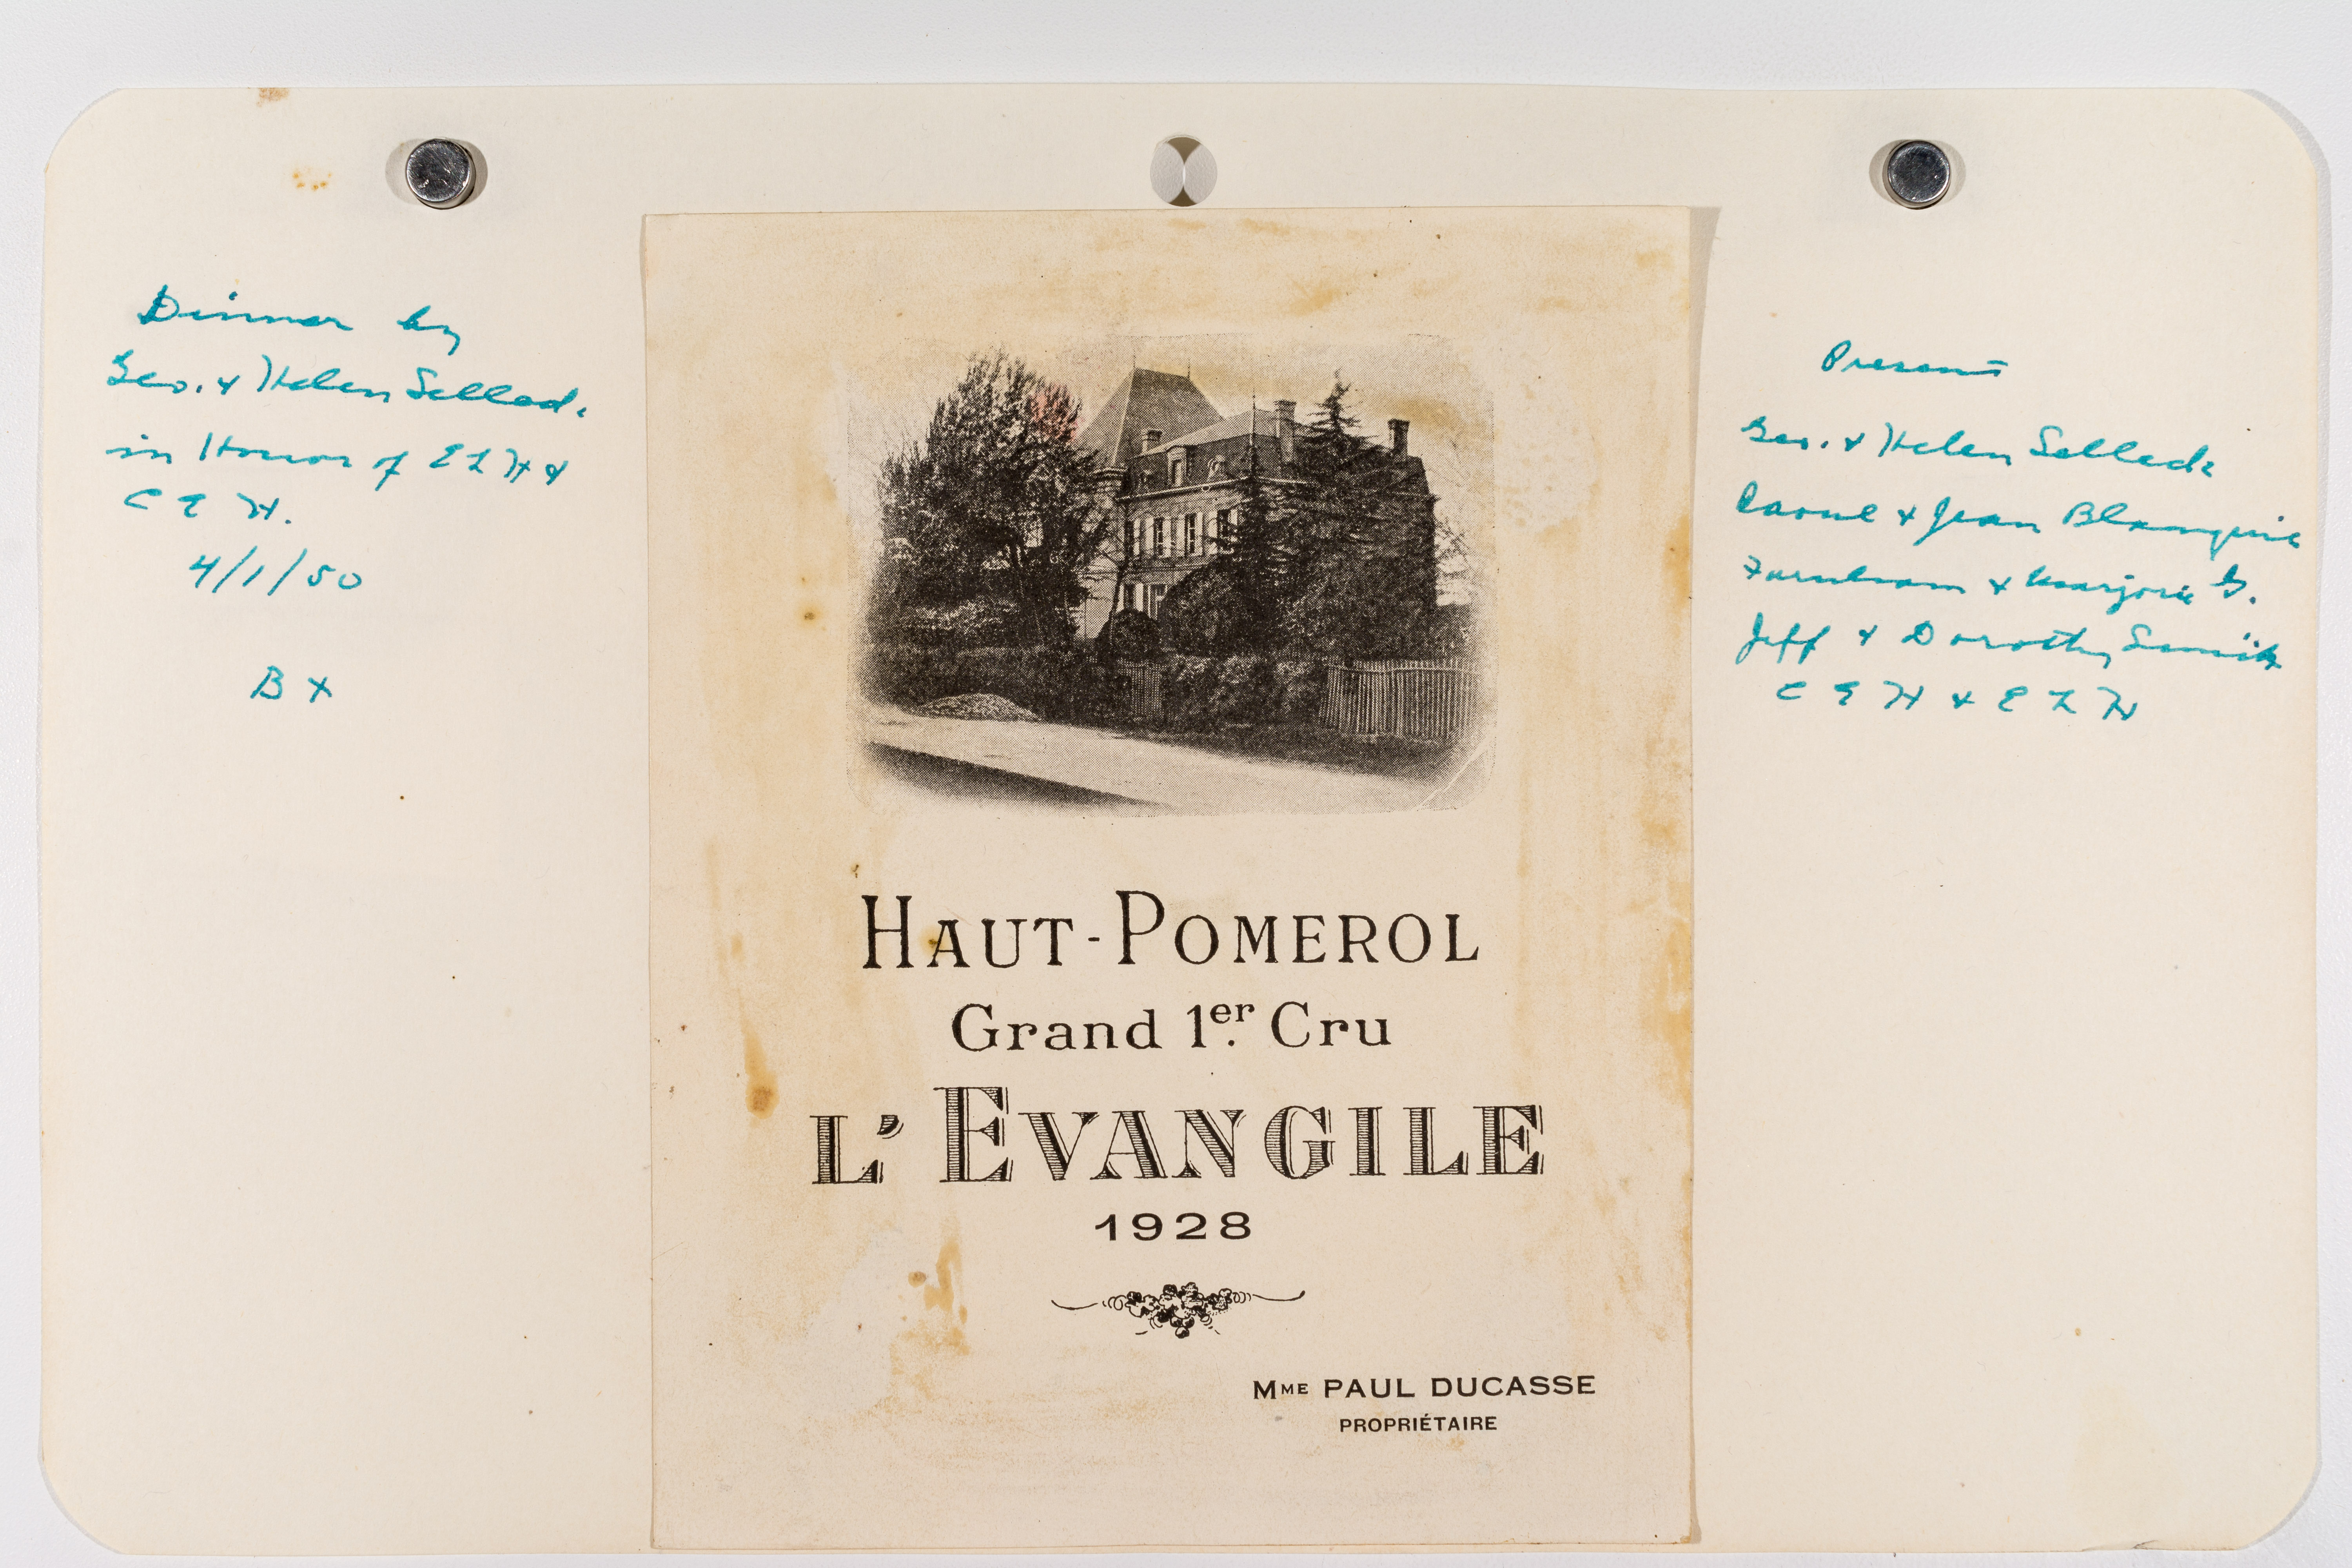 Dinner by
Geo. & Helen Selleck
in Honor of ELH &
CEH.
4/1/50
B+
HAUT-POMEROL
Grand 1er Cru
L'EVANGILE
1928
MME PAUL DUCASSE
PROPRIÉTAIRE
Present
Geo. & Helen Selleck
Raoul & Jean Blanquie
Farnham & Marjorie G.
Jeff & Dorothy Smith
CEH & ELH